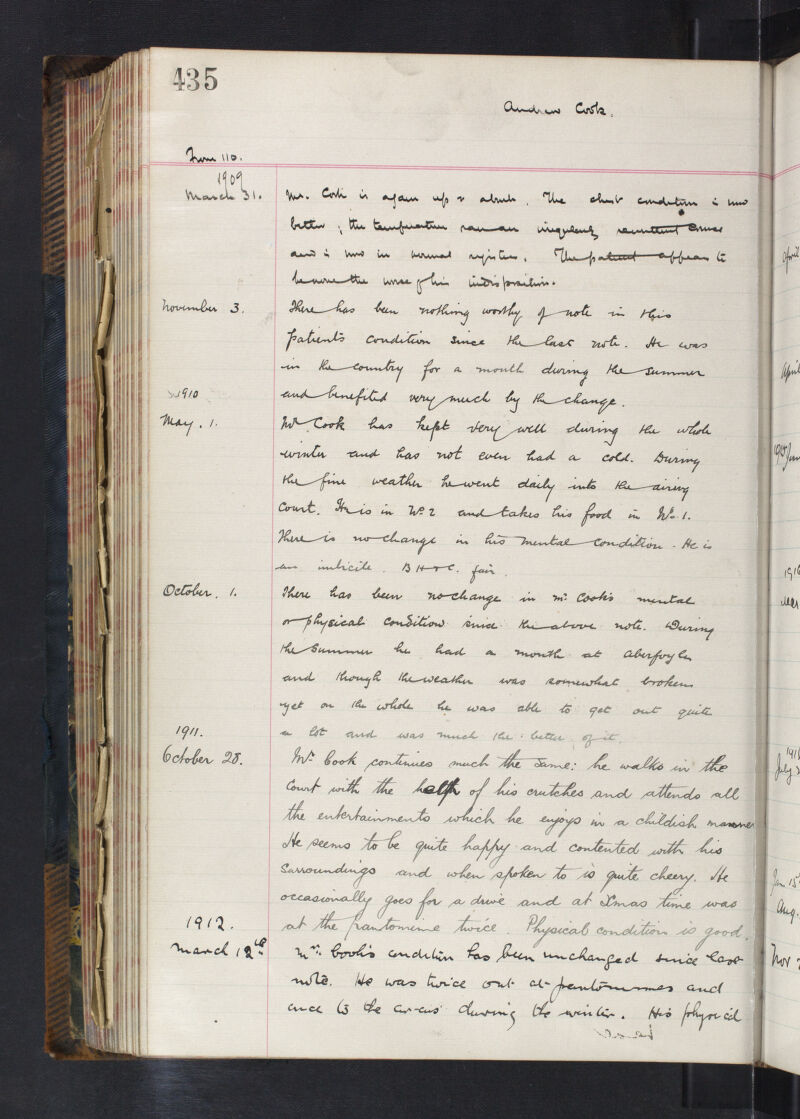 435
Andrew Cook.
From 110.
1909
March 31. Mr. Cook is again up & about. The chest condition is now
better; the temperature ran an irregularly remittent course
and is now in normal register. The patient appears to
be none the worse of his indisposition.
November 3. There has been nothing worthy of note in this
patient's condition since the last note. He was
in the country for a month during the summer
and benefited very much by the change.
1910
May. 1. Mr Cook has kept very well during the whole
winter and has not even had a cold. During
the fine weather he went daily into the airing
court. He is in No 2 and takes his food in No 1.
There is no change in his mental condition. He is
an imbecile. B H & C. fair.
October. 1. There has been no change in Mr Cook's mental
or physical condition since the above note. During
the summer he had a month at Aberfoyle
and though the weather was somewhat broken
yet on the whole he was able to get out quite
a lot and was much the better of it.
1911.
October 28. Mr Cook continues much the same: he walks in the
Court with the help of his crutches and attends all
the entertainments which he enjoys in a childish manner
He seems to be quite happy and contented with his
surroundings and when spoken to is quite cheery. He
occasionally goes for a drive and at Xmas time was
at the pantomime twice. Physical condition is good.
1912.
March 12th Mr. Cook's condition has been unchanged since last
note. He was twice out at pantomimes and
once to the circus during the winter. His physical
April
April
1915 Jun
1916
Mar
1916
July
Jan 15
Aug.
Nov